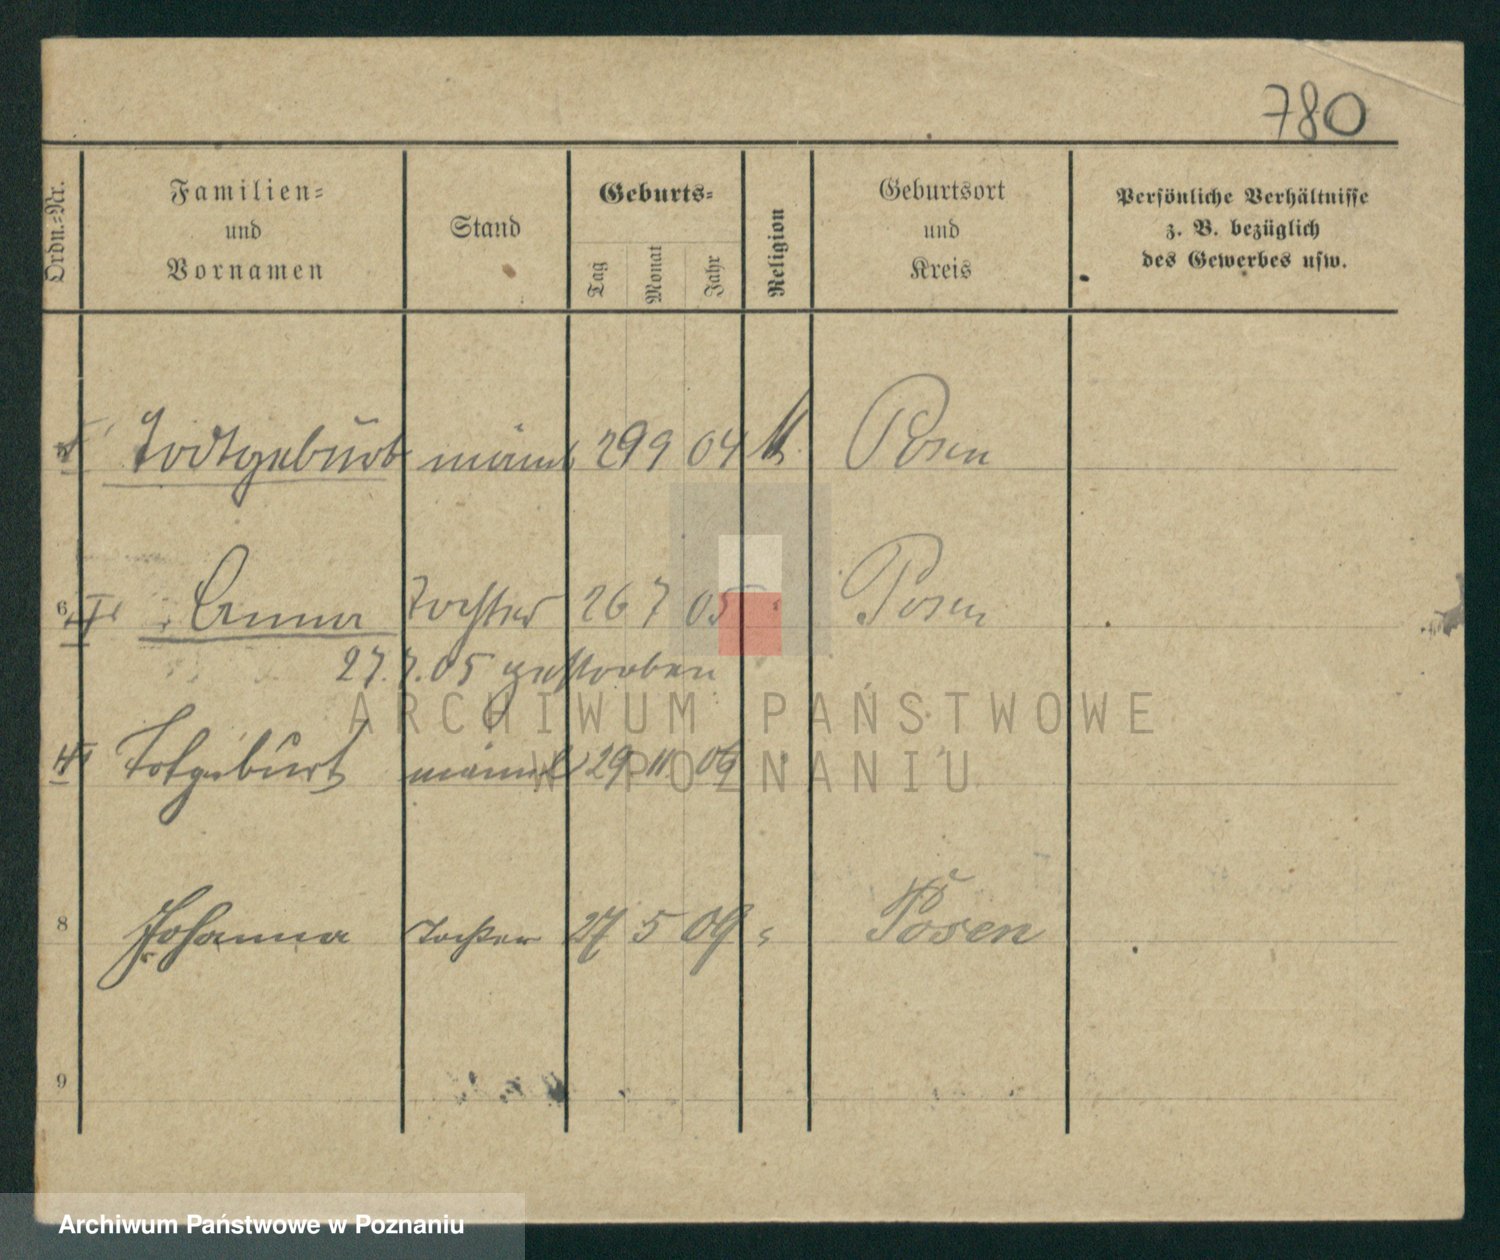 780
Ordn.-Nr.
Familien-
und
Vornamen
Stand
Geburts-
Tag
Monat
Jahr
Religion
Geburtsort
und
Kreis
Persönliche Verhältnisse
z. B. bezüglich
des Gewerbes usw.
Todtgeburt männl 29 9 04 Posen
6 Anna Tochter 26 7 05 Posen
27.7.05 gestorben
Totgeburt männl 29 11
8 Johanna Tochter 27 5 09 Posen
9
ARCHIWUM PAŃSTWOWE
W POZNANIU
Archiwum Państwowe w Poznaniu